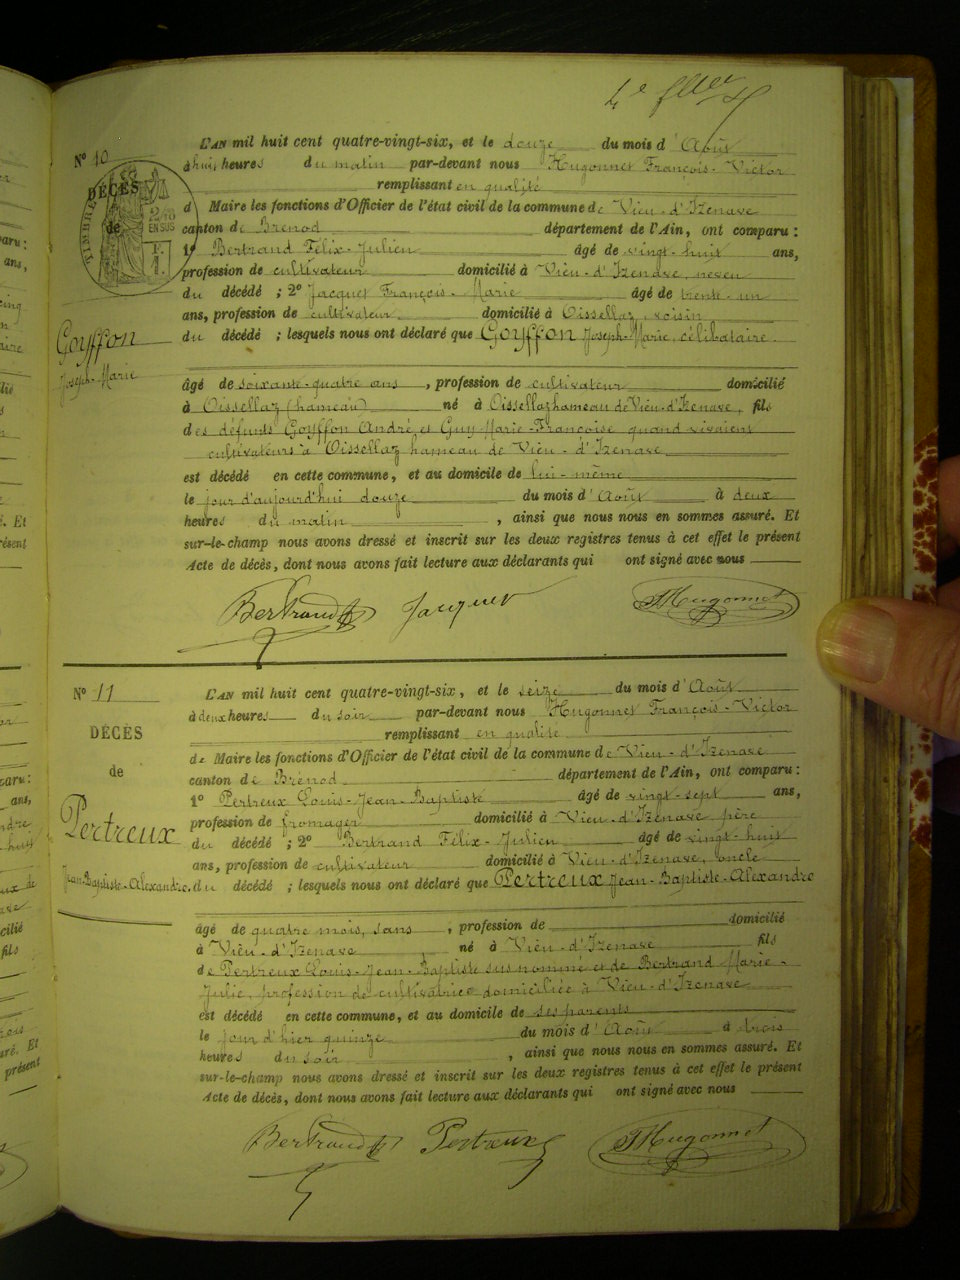 4e flet
N° 10
DÉCÈS
de
TIMBRE
2/10
EN SUS
F.
1.
Goyffon
Joseph-Marie
L'AN mil huit cent quatre-vingt-six, et le douze du mois d'Août
à huit heures du matin par-devant nous Hugonnet François-Victor
remplissant en qualité
d Maire les fonctions d'Officier de l'état civil de la commune de Vieu-d'Izenave
canton de Brénod département de l'Ain, ont comparu :
1° Bertrand Félix-Julien âgé de vingt-huit ans,
profession de cultivateur domicilié à Vieu-d'Izenave, neveu
du décédé ; 2° Jacquet François-Marie âgé de trente-un
ans, profession de cultivateur domicilié à Oissellaz, voisin
du décédé ; lesquels nous ont déclaré que Goyffon Joseph-Marie, célibataire
âgé de soixante-quatre ans , profession de cultivateur domicilié
à Oissellaz (hameau) né à Oissellaz hameau de Vieu-d'Izenave, fils
des défunts Goyffon André et Guy Marie-Françoise quand vivaient
cultivateurs à Oissellaz hameau de Vieu-d'Izenave
est décédé en cette commune, et au domicile de lui-même
le jour d'aujourd'hui douze du mois d'Août à deux
heures du matin , ainsi que nous nous en sommes assuré. Et
sur-le-champ nous avons dressé et inscrit sur les deux registres tenus à cet effet le présent
Acte de décès, dont nous avons fait lecture aux déclarants qui ont signé avec nous
Bertrand Jacquet Hugonnet
N° 11
DÉCÈS
de
Pertreux
Jean-Baptiste-Alexandre
L'AN mil huit cent quatre-vingt-six, et le seize du mois d'Août
à deux heures du soir par-devant nous Hugonnet François-Victor
remplissant en qualité
de Maire les fonctions d'Officier de l'état civil de la commune de Vieu-d'Izenave
canton de Brénod département de l'Ain, ont comparu :
1° Pertreux Louis-Jean-Baptiste âgé de vingt-sept ans,
profession de fromager domicilié à Vieu-d'Izenave père
du décédé ; 2° Bertrand Félix-Julien âgé de vingt-huit
ans, profession de cultivateur domicilié à Vieu-d'Izenave, oncle
du décédé ; lesquels nous ont déclaré que Pertreux Jean-Baptiste-Alexandre
âgé de quatre mois, sans , profession de domicilié
à Vieu-d'Izenave né à Vieu-d'Izenave fils
de Pertreux Louis-Jean-Baptiste susnommé et de Bertrand Marie-
Julie, profession de cultivatrice domiciliée à Vieu-d'Izenave
est décédé en cette commune, et au domicile de ses parents
le jour d'hier quinze du mois d'Août à trois
heures du soir , ainsi que nous nous en sommes assuré. Et
sur-le-champ nous avons dressé et inscrit sur les deux registres tenus à cet effet le présent
Acte de décès, dont nous avons fait lecture aux déclarants qui ont signé avec nous
Bertrand Pertreux Hugonnet